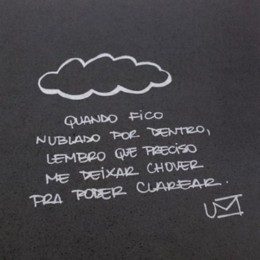 QUANDO FICO
NUBLADO POR DENTRO,
LEMBRO QUE PRECISO
ME DEIXAR CHOVER
PRA PODER CLAREAR.